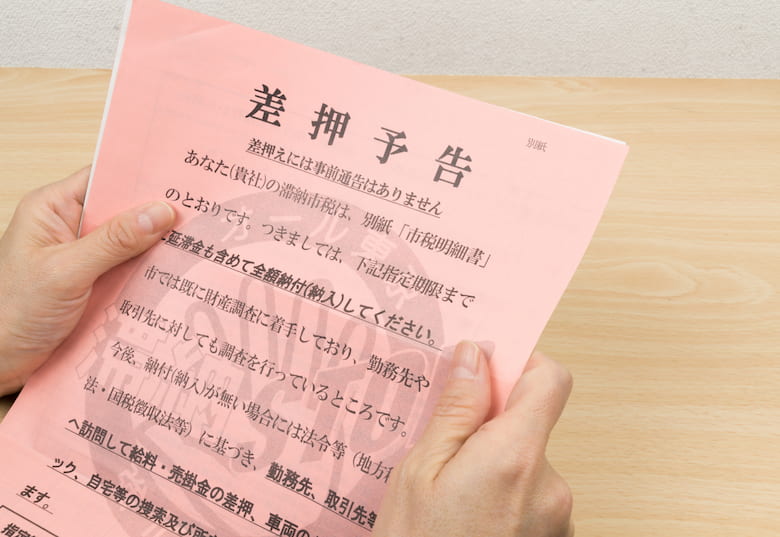 差押予告
別紙
差押えには事前通告はありません
あなた(貴社)の滞納市税は、別紙「市税明細書」
のとおりです。つきましては、下記指定期限まで
に延滞金も含めて全額納付(納入)してください。
市では既に財産調査に着手しており、勤務先や
取引先に対しても調査を行っているところです。
今後、納付(納入)が無い場合には法令等（地方税
法・国税徴収法等）に基づき、勤務先、取引先等
へ訪問して給料・売掛金の差押、車両の
ック、自宅等の捜索及び
ます。
指定